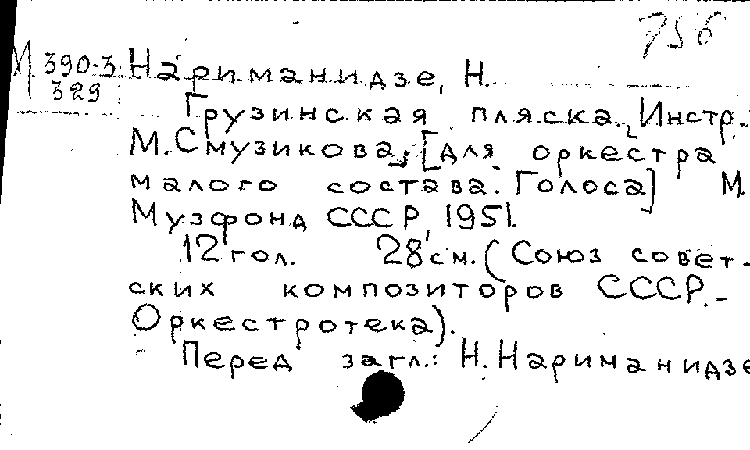 756
М 390-3
329
Нариманидзе, Н.
Грузинская пляска. Инстр.
М. Смузикова, [для оркестра
малого состава. Голоса] М.
Музфонд СССР, 1951.
12 гол. 28 см. (Союз совет-
ских композиторов СССР. -
Оркестротека).
Перед загл.: Н. Нариманидзе